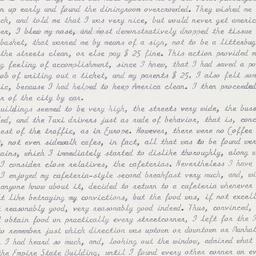 n up early and found the diningroom overcrowded. They wished me
ch, and told me that I was very nice, but would never get americ
er, I blew my nose, and most demonstratively dropped the tissue
basket, that seemed to me by means of a sign, not to be a litterbug
the streets clean, or else pay $ 25 fine. This action provided m
g feeling of accomplishment, since I knew, that I had saved a po
ob of writing out a ticket, and my parents $ 25. I also felt som
ic, because I had helped to keep America clean. I then proceeded
r of the city by car.
buildings seemed to be very high, the streets very wide, the buse
ded, and the Taxi drivers just as rude of behavior, that is, conc
est of the traffic, as in Europe. However, there were no Coffee
, not even sidewalk cafes, in fact, all that was to be found wer
ains, which I immediately started to dislike thoroughly, along w
I consider close relatives, the cafeterias. Nevertheless I have
I enjoyed my cafeteria-style second breakfast very much, and, wi
anyone know about it, decided to return to a cafeteria whenever
lt like betraying my convictions, but the food was, if not excell
t reasonably good, very reasonably good indeed. Thus, convinced,
obtain food on practically every streetcorner, I left for the
to remember just which direction was uptown or downtown on Manhat
I had heard so much, and, looking out the window, admired what
the Empire State Building, until I found every other corner an ev